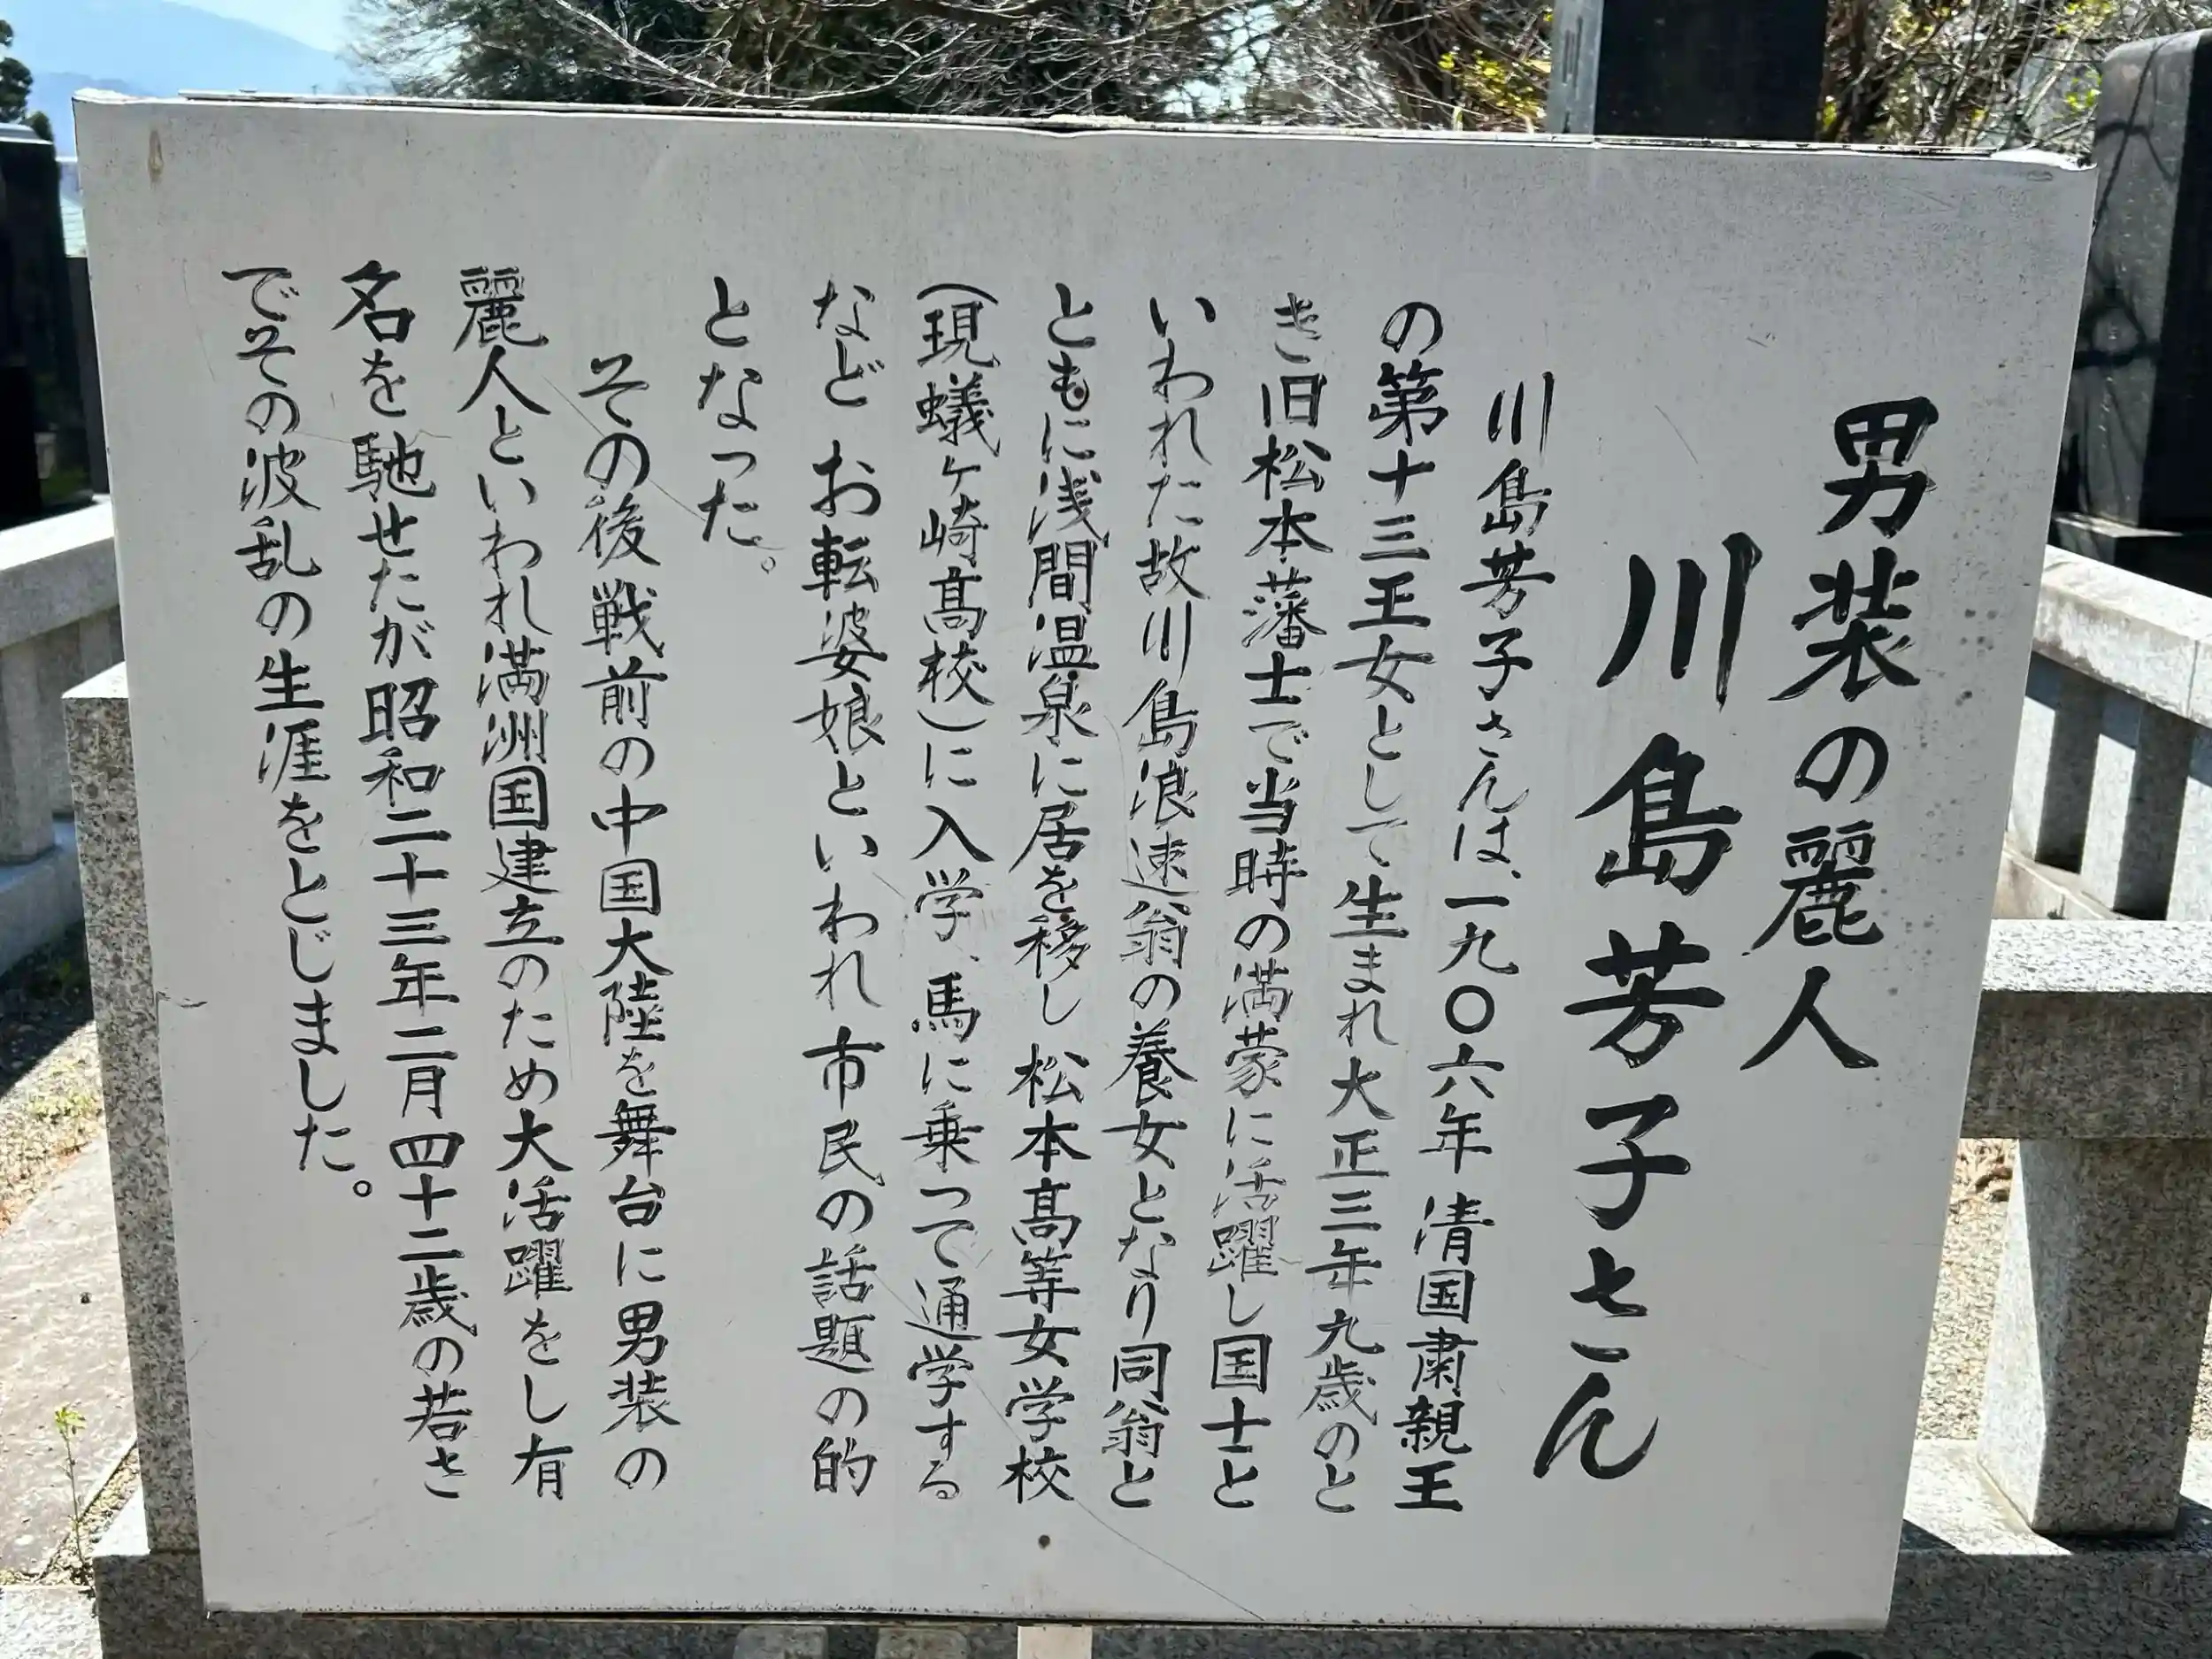 男装の麗人
川島芳子さん
川島芳子さんは、一九〇六年 清国粛親王
の第十三王女として生まれ大正三年九歳のと
き旧松本藩士で当時の満蒙に活躍し国士と
いわれた故川島浪速翁の養女となり同翁と
ともに浅間温泉に居を移し 松本高等女学校
(現蟻ヶ崎高校)に入学、馬に乗って通学する
など お転婆娘といわれ市民の話題の的
となった。
その後戦前の中国大陸を舞台に男装の
麗人といわれ満洲国建立のため大活躍をし有
名を馳せたが昭和二十三年二月四十二歳の若さ
でその波乱の生涯をとじました。